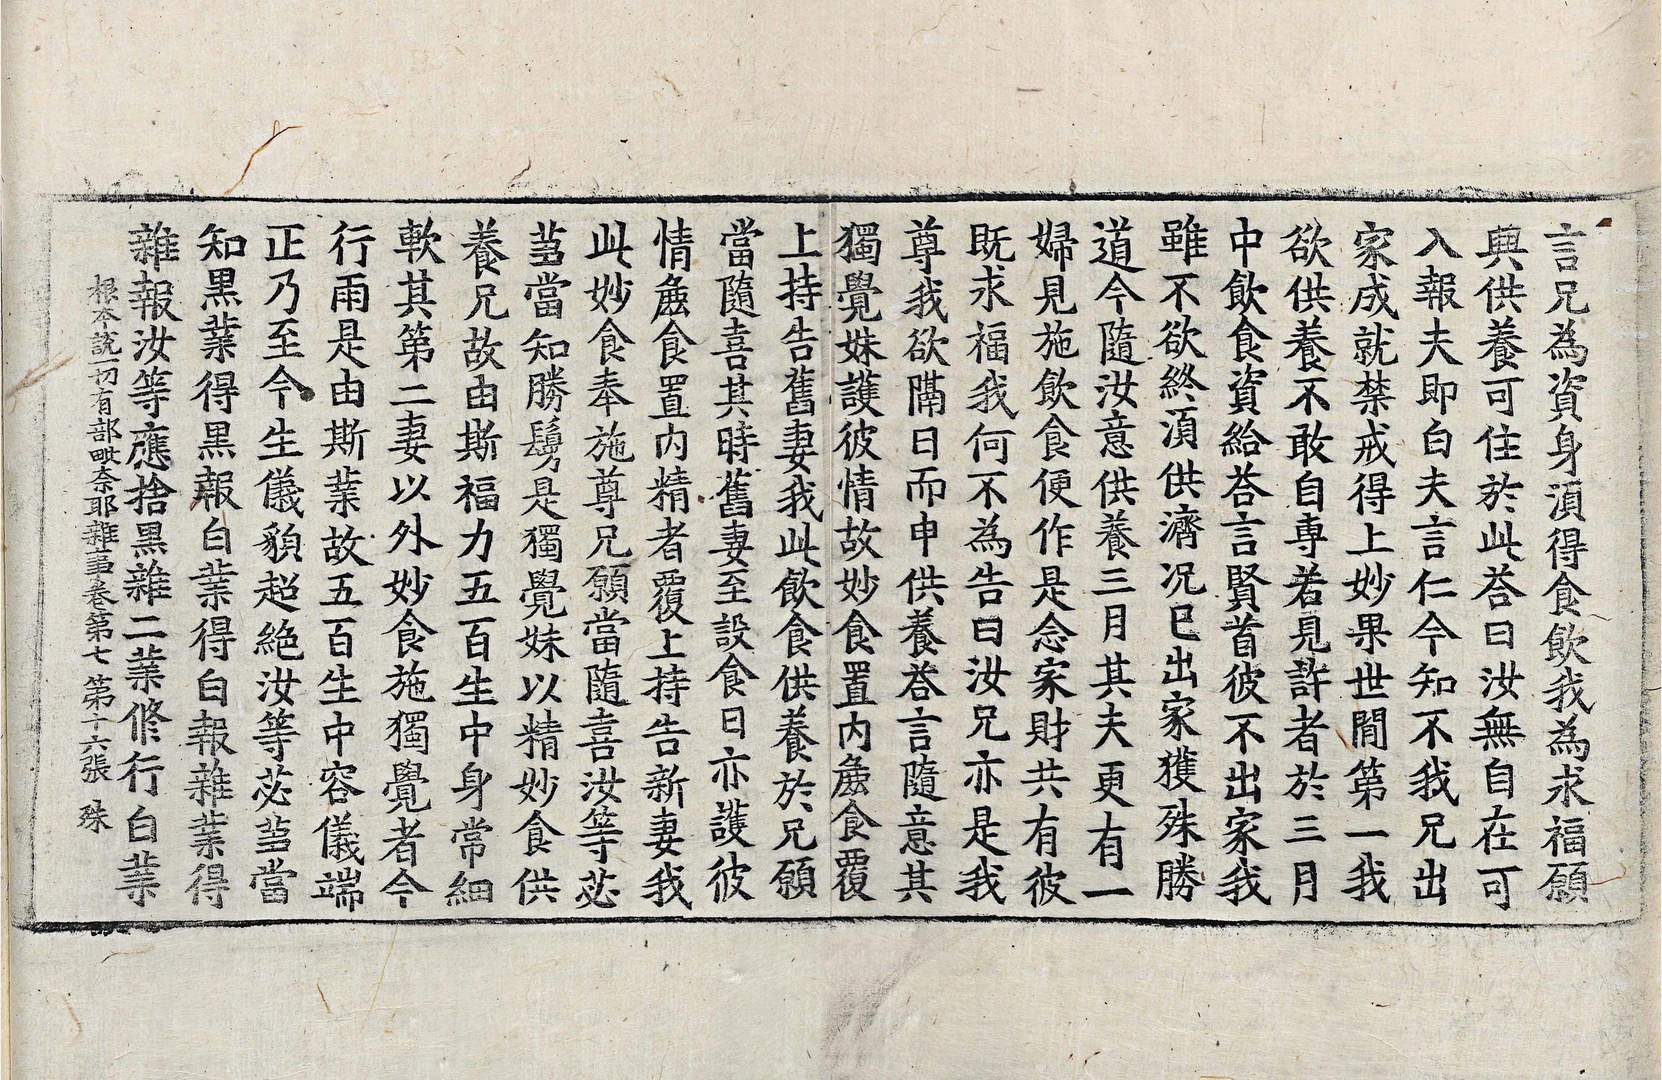 言兄為資身湏得食飲我為求福願
興供養可住於此荅曰汝無自在可
入報夫即白夫言仁今知不我兄出
家成就禁戒得上妙果世間第一我
欲供養不敢自專若見許者於三月
中飲食資給荅言賢首彼不出家我
雖不欲終湏供濟况已出家獲殊勝
道今隨汝意供養三月其夫更有一
婦見施飲食便作是念家財共有彼
既求福我何不為告曰汝兄亦是我
尊我欲隔日而申供養荅言隨意其
獨覺妹護彼情故妙食置内麁食覆
上持告舊妻我此飲食供養於兄願
當隨喜其時舊妻至設食日亦護彼
情麁食置内精者覆上持告新妻我
此妙食奉施尊兄願當隨喜汝等苾
蒭當知勝鬘是獨覺妹以精妙食供
養兄故由斯福力五百生中身常細
軟其第二妻以外妙食施獨覺者今
行雨是由斯業故五百生中容儀端
正乃至今生儀貌超絶汝等苾蒭當
知黒業得黒報白業得白報雜業得
雜報汝等應捨黒雜二業修行白業
根本說一切有部毗奈耶雜事卷第七 第十六張 殊